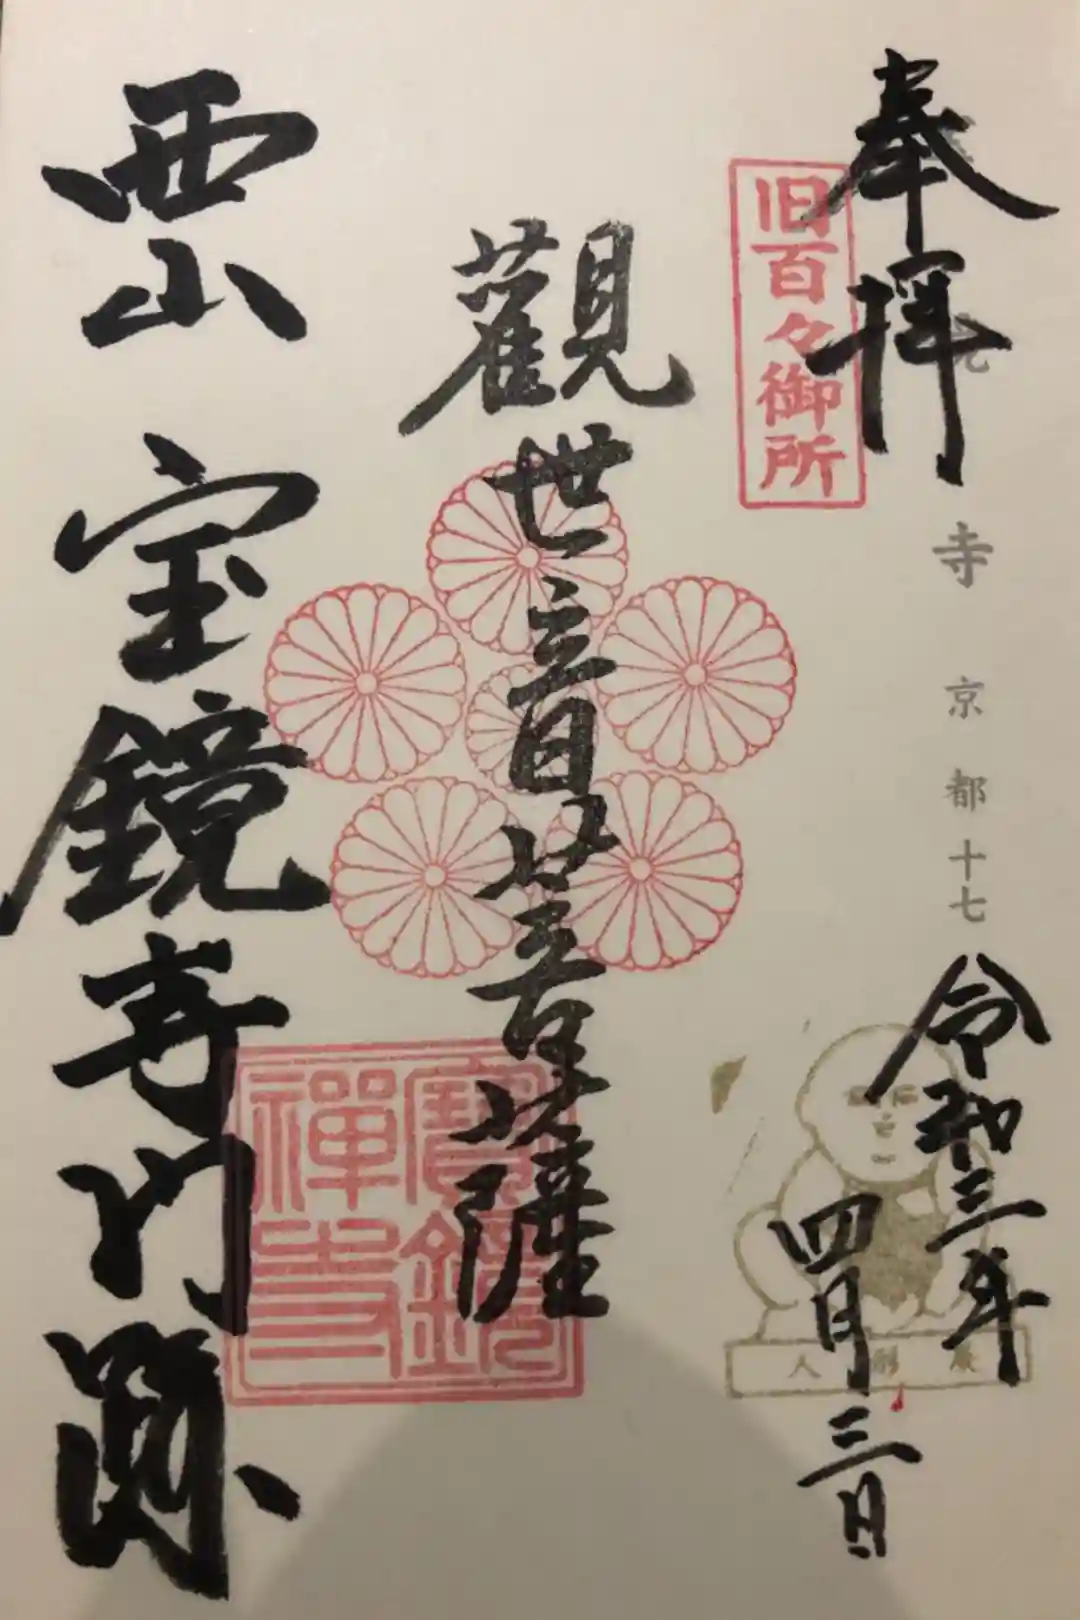 奉拝
旧百々御所
寺 京都十七
令和三年
四月三日
人形展
觀世音菩薩
寶鏡
禪寺
西山 宝鏡寺門跡